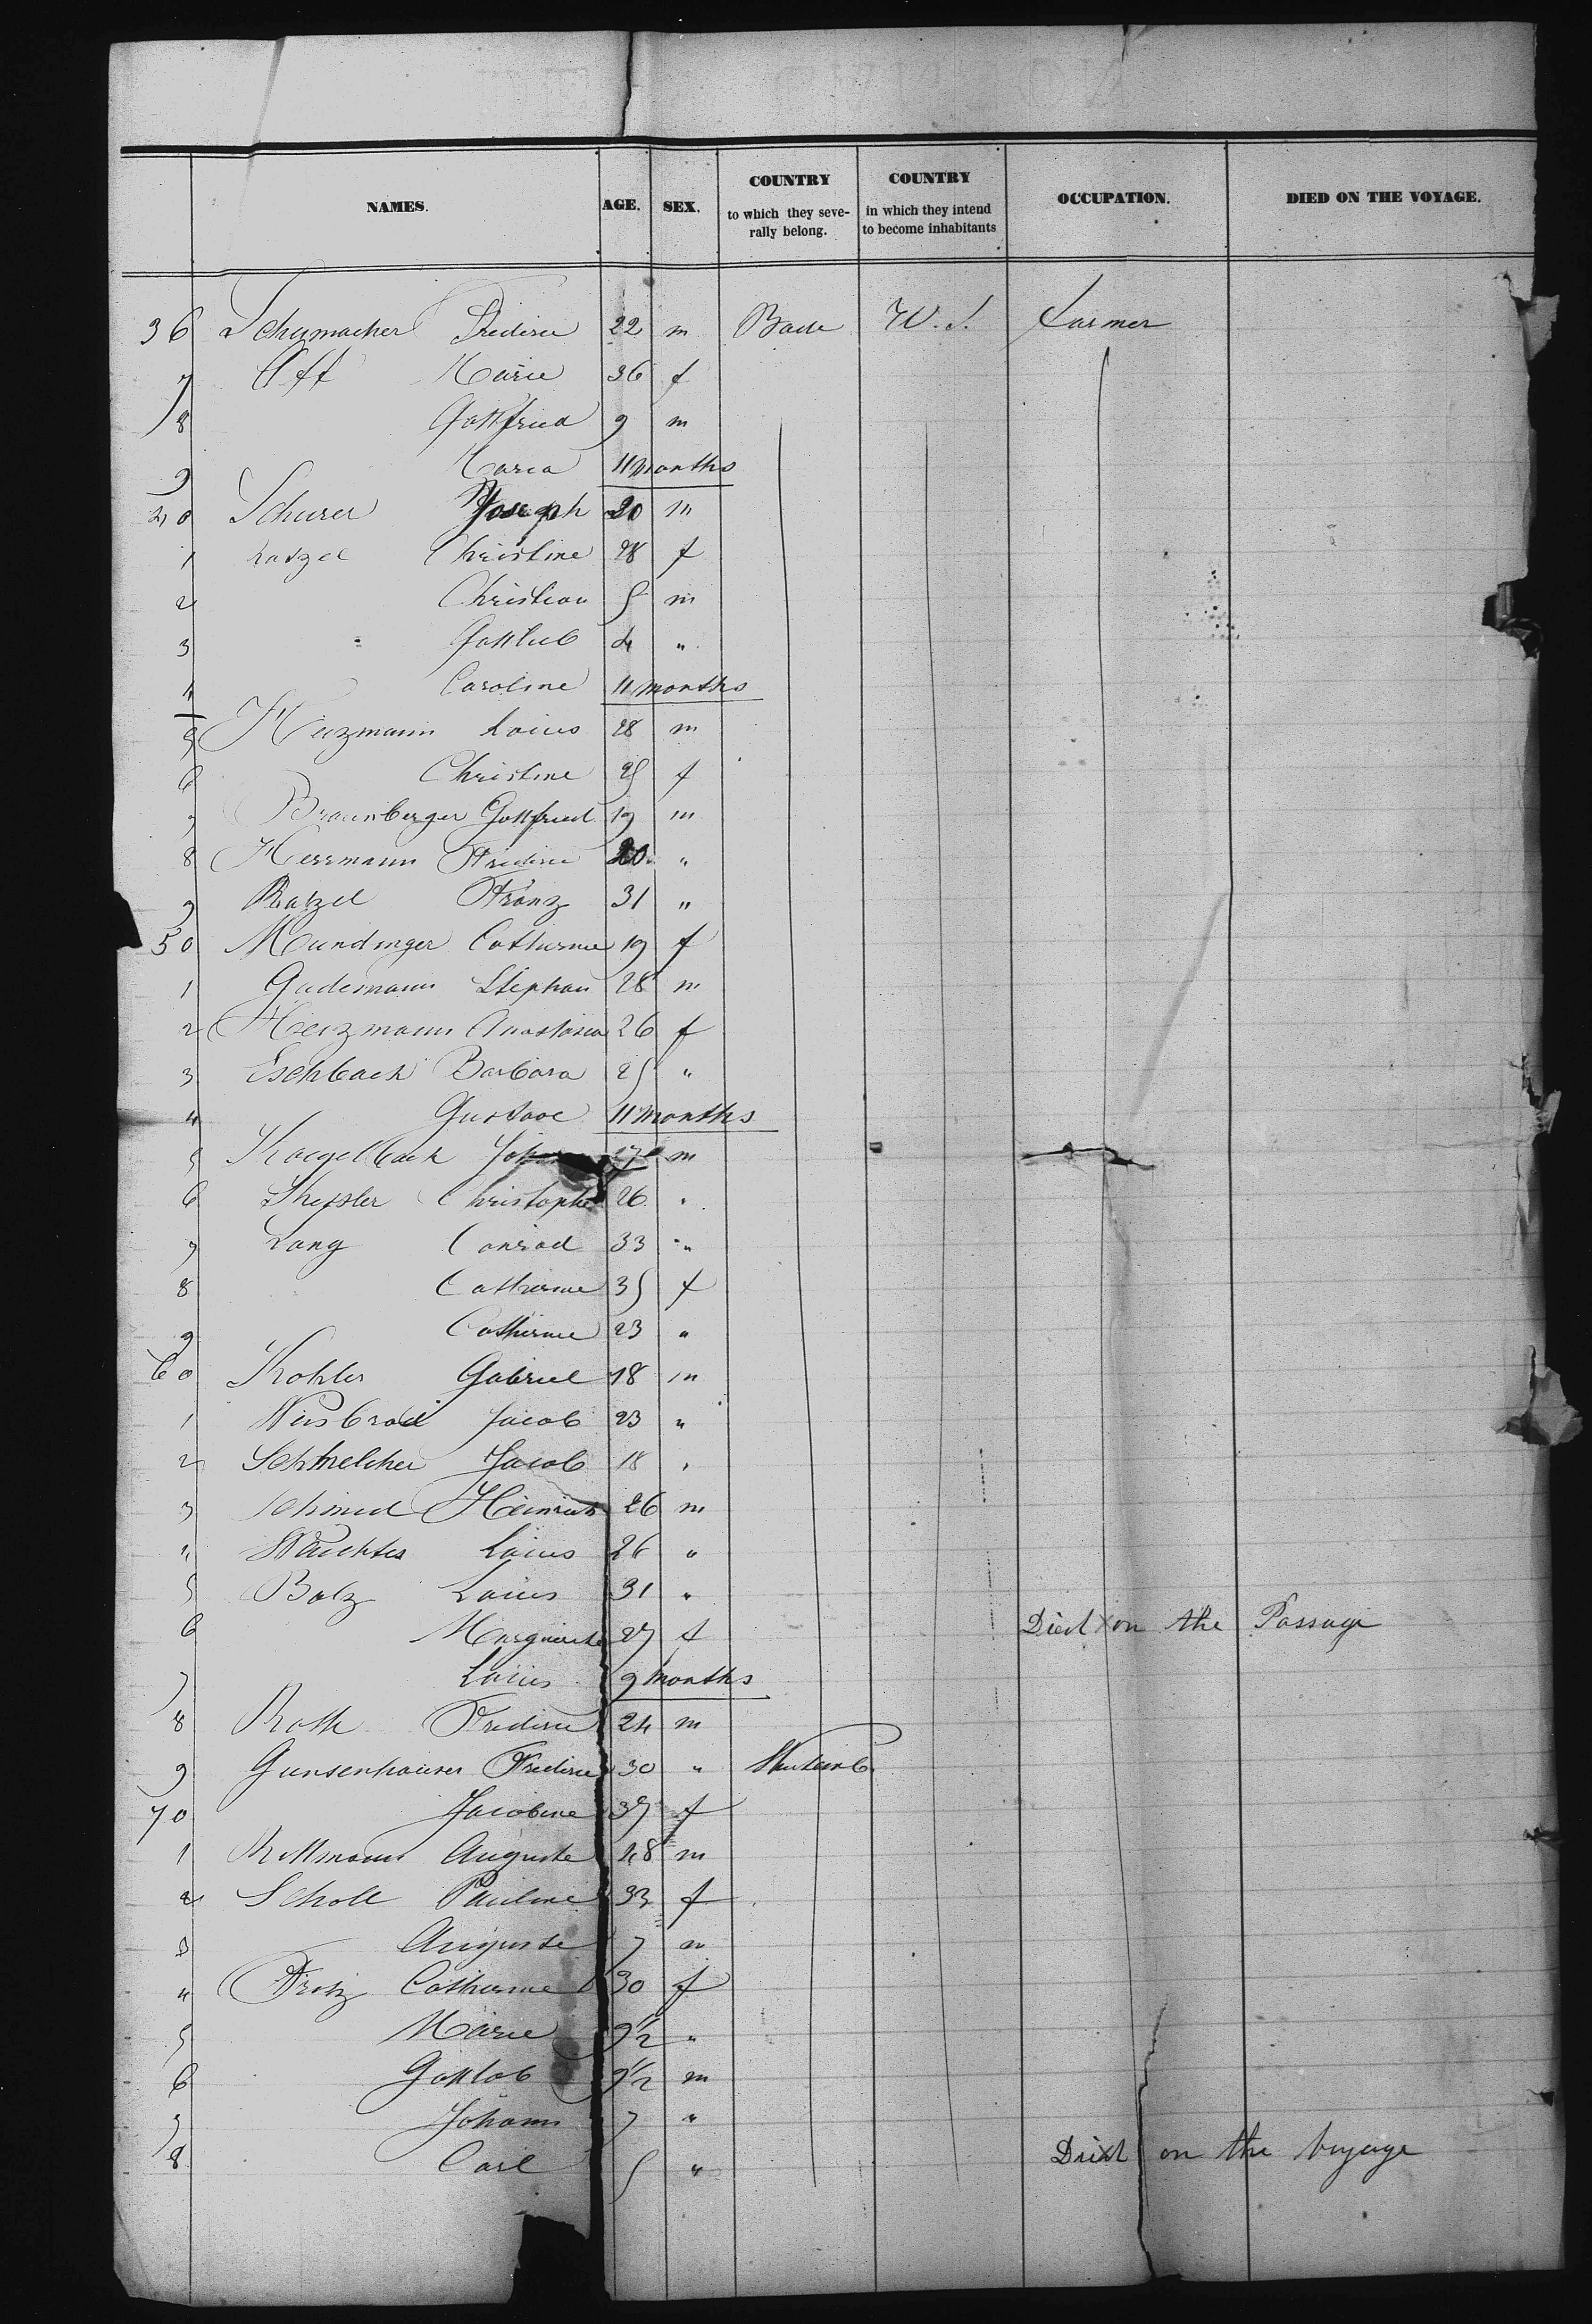 NAMES. AGE. SEX. COUNTRY to which they seve- rally belong. COUNTRY in which they intend to become inhabitants OCCUPATION. DIED ON THE VOYAGE.
36 Schumacher Frederic 22 m Bade U.S. farmer
7 Off Marie 36 f
8 Gottfried 9 m
9 Maria 11 months
40 Schurer Joseph 20 m
1 Ratzel Christine 28 f
2 Christian 5 m
3 Gottlieb 4 "
4 Caroline 11 months
5 Heizmann Louis 28 m
6 Christine 25 f
7 Braunberger Gottfried 19 m
8 Herrmann Frederic 20 "
9 Ratzel Franz 31 "
50 Mundinger Catherine 19 f
1 Gudemann Stephan 28 m
2 Heizmann Anastasia 26 f
3 Eschbach Barbara 25 "
4 Gustave 11 months
5 Kaegelback 17 m
6 Christophe 26 "
7 Lang Conrad 33 "
8 Catherine 35 f
9 Catherine 23 "
60 Kohler Gabriel 18 m
1 Jacob 23 "
2 Schmelcher Jacob 18 "
3 Schmid Heinrich 26 m
4 Louis 26 "
5 Balz Louis 31 "
6 Marguerite 27 f Died on the Passage
7 Louis 9 months
8 Roth Frederic 24 m
9 Gunsenhauser Frederic 30 " Wurtemb.
70 Jacobine 37 f
1 Auguste 48 m
2 Scholl Pauline 33 f
3 Auguste 7 m
4 Catherine 30 f
5 Marie 9 1/2 "
6 Gottlob 9 1/2 m
7 Johann 7 "
8 Carl 5 " Died on the Voyage